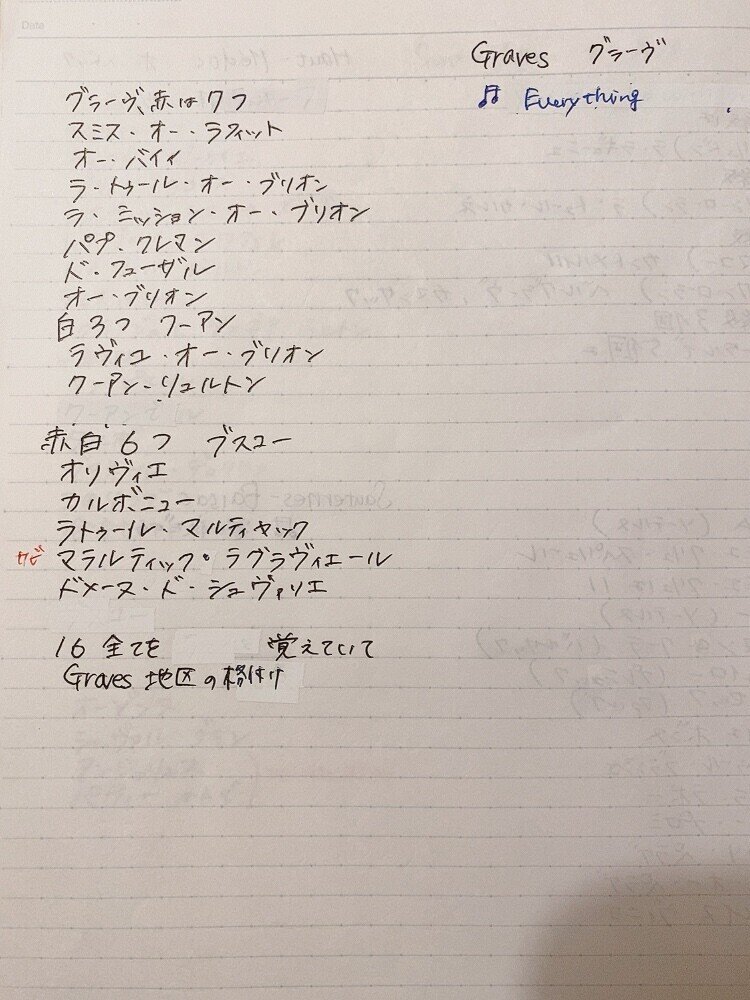 Date
Graves グラーヴ
♫ Everything
グラーヴ、赤は7つ
スミス・オー・ラフィット
オー・バイイ
ラ・トゥール・オー・ブリオン
ラ・ミッション・オー・ブリオン
パプ・クレマン
ド・フューザル
オー・ブリオン
白3つ クーアン
ラヴィユ・オー・ブリオン
クーアン・リュルトン
赤白6つ ブスコー
オリヴィエ
カルボニュー
ラトゥール・マルティヤック
サビ マラルティック・ラグラヴィエール
ドメーヌ・ド・シュヴァリエ
16 全てを 覚えていて
Graves 地区の格付け